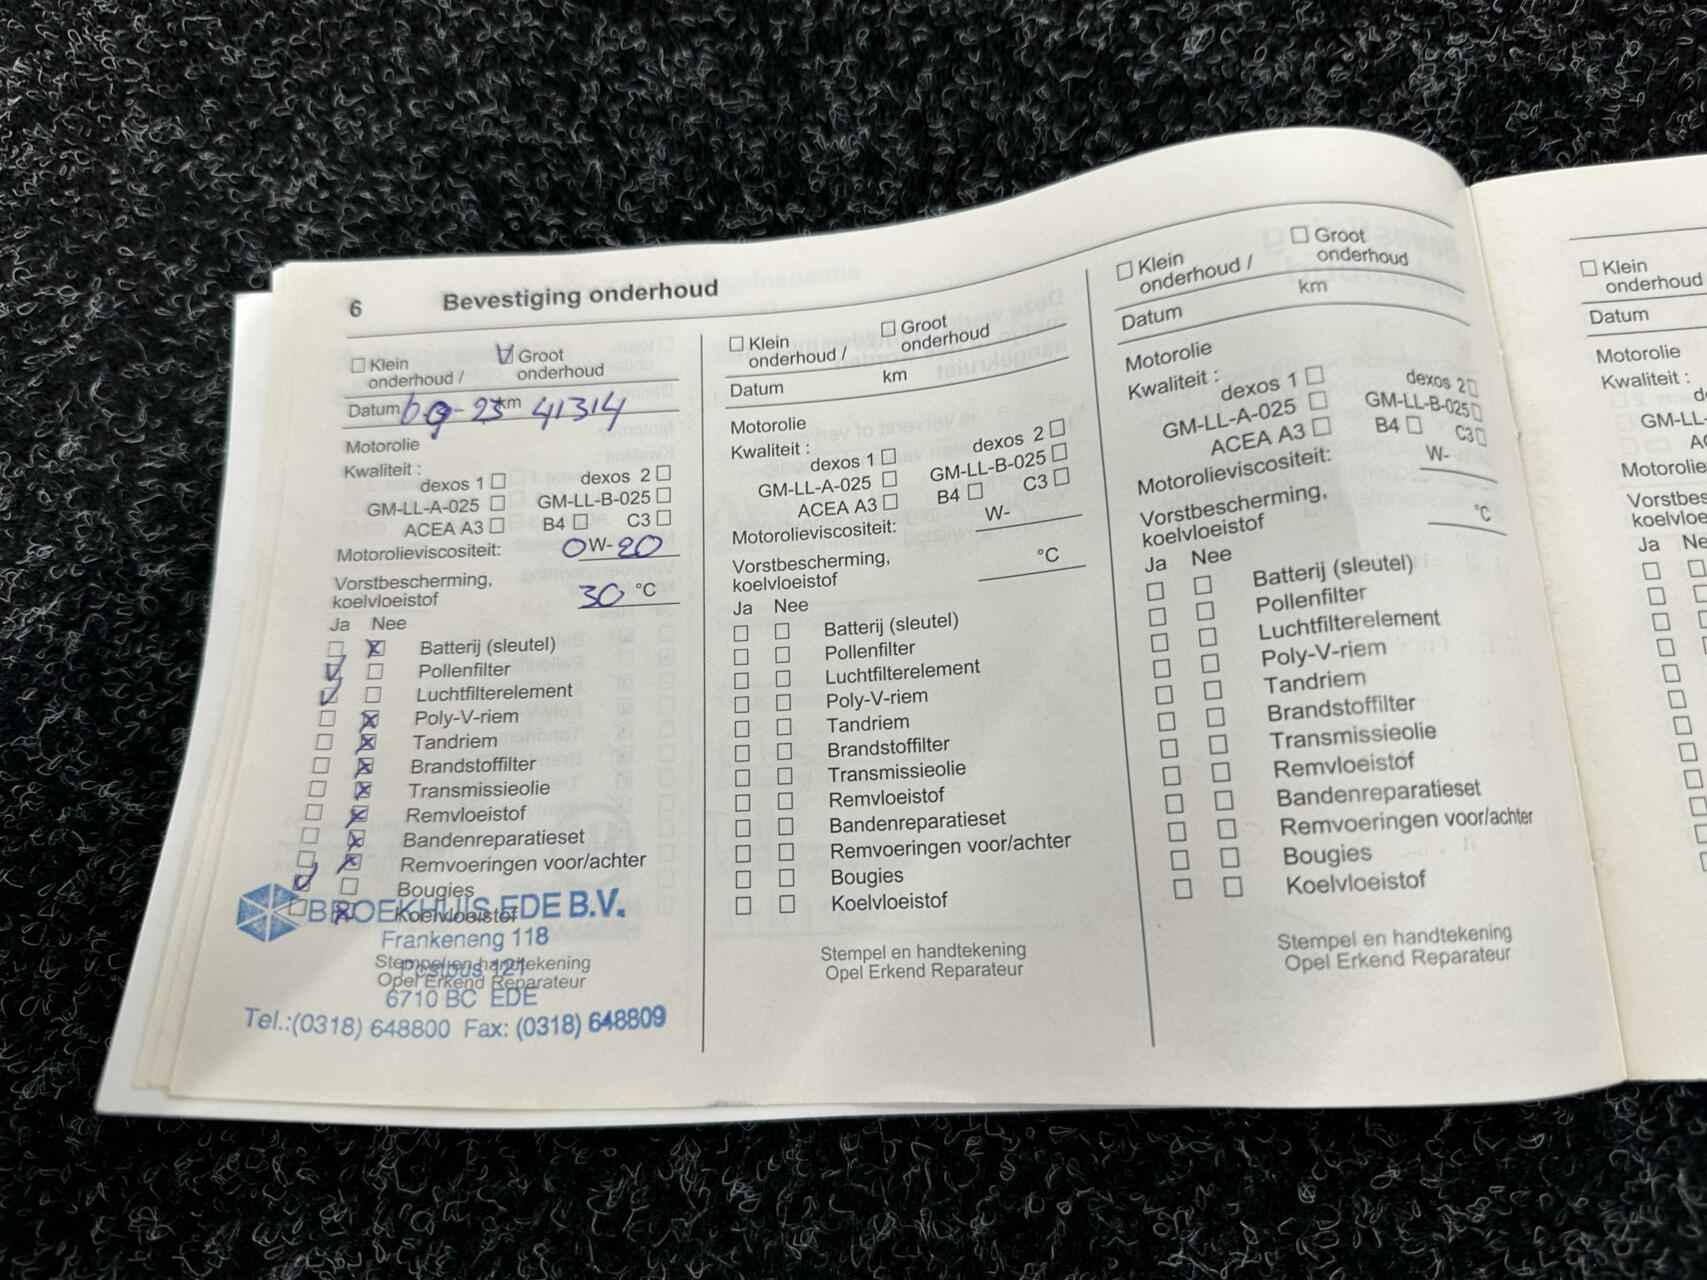 6 Bevestiging onderhoud
Klein onderhoud /
Groot onderhoud
Datum 6-9-23 km 41314
Motorolie
Kwaliteit :
dexos 1 dexos 2
GM-LL-A-025 GM-LL-B-025
ACEA A3 B4 C3
Motorolieviscositeit: 0W-20
Vorstbescherming,
koelvloeistof 30 °C
Ja Nee
Batterij (sleutel)
Pollenfilter
Luchtfilterelement
Poly-V-riem
Tandriem
Brandstoffilter
Transmissieolie
Remvloeistof
Bandenreparatieset
Remvoeringen voor/achter
Bougies
Koelvloeistof
BROEKHUIS EDE B.V.
Frankeneng 118
Stempel en handtekening
Postbus 121
Opel Erkend Reparateur
6710 BC EDE
Tel.:(0318) 648800 Fax: (0318) 648809
Klein onderhoud /
Groot onderhoud
Datum km
Motorolie
Kwaliteit :
dexos 1 dexos 2
GM-LL-A-025 GM-LL-B-025
ACEA A3 B4 C3
Motorolieviscositeit: W-
Vorstbescherming,
koelvloeistof °C
Ja Nee
Batterij (sleutel)
Pollenfilter
Luchtfilterelement
Poly-V-riem
Tandriem
Brandstoffilter
Transmissieolie
Remvloeistof
Bandenreparatieset
Remvoeringen voor/achter
Bougies
Koelvloeistof
Stempel en handtekening
Opel Erkend Reparateur
Klein onderhoud /
Groot onderhoud
Datum km
Motorolie
Kwaliteit :
dexos 1 dexos 2
GM-LL-A-025 GM-LL-B-025
ACEA A3 B4 C3
Motorolieviscositeit: W-
Vorstbescherming,
koelvloeistof °C
Ja Nee
Batterij (sleutel)
Pollenfilter
Luchtfilterelement
Poly-V-riem
Tandriem
Brandstoffilter
Transmissieolie
Remvloeistof
Bandenreparatieset
Remvoeringen voor/achter
Bougies
Koelvloeistof
Stempel en handtekening
Opel Erkend Reparateur
Klein
onderhoud
Datum
Motorolie
Kwaliteit :
GM-LL-
Motorolie
Vorstbes
koelvloe
Ja Ne